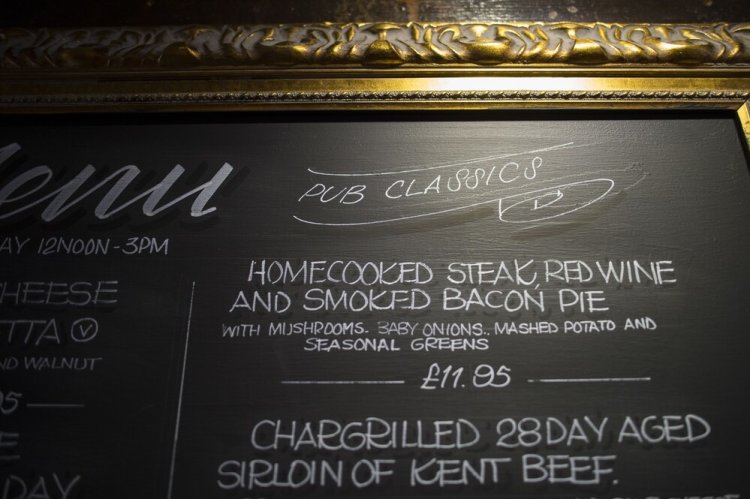 Menu
AY 12NOON-3PM
CHEESE
TTA V
ND WALNUT
5
E
DAY
PUB CLASSICS
HOMECOOKED STEAK, RED WINE
AND SMOKED BACON PIE
WITH MUSHROOMS. BABY ONIONS.. MASHED POTATO AND
SEASONAL GREENS
£11.95
CHARGRILLED 28 DAY AGED
SIRLOIN OF KENT BEEF.